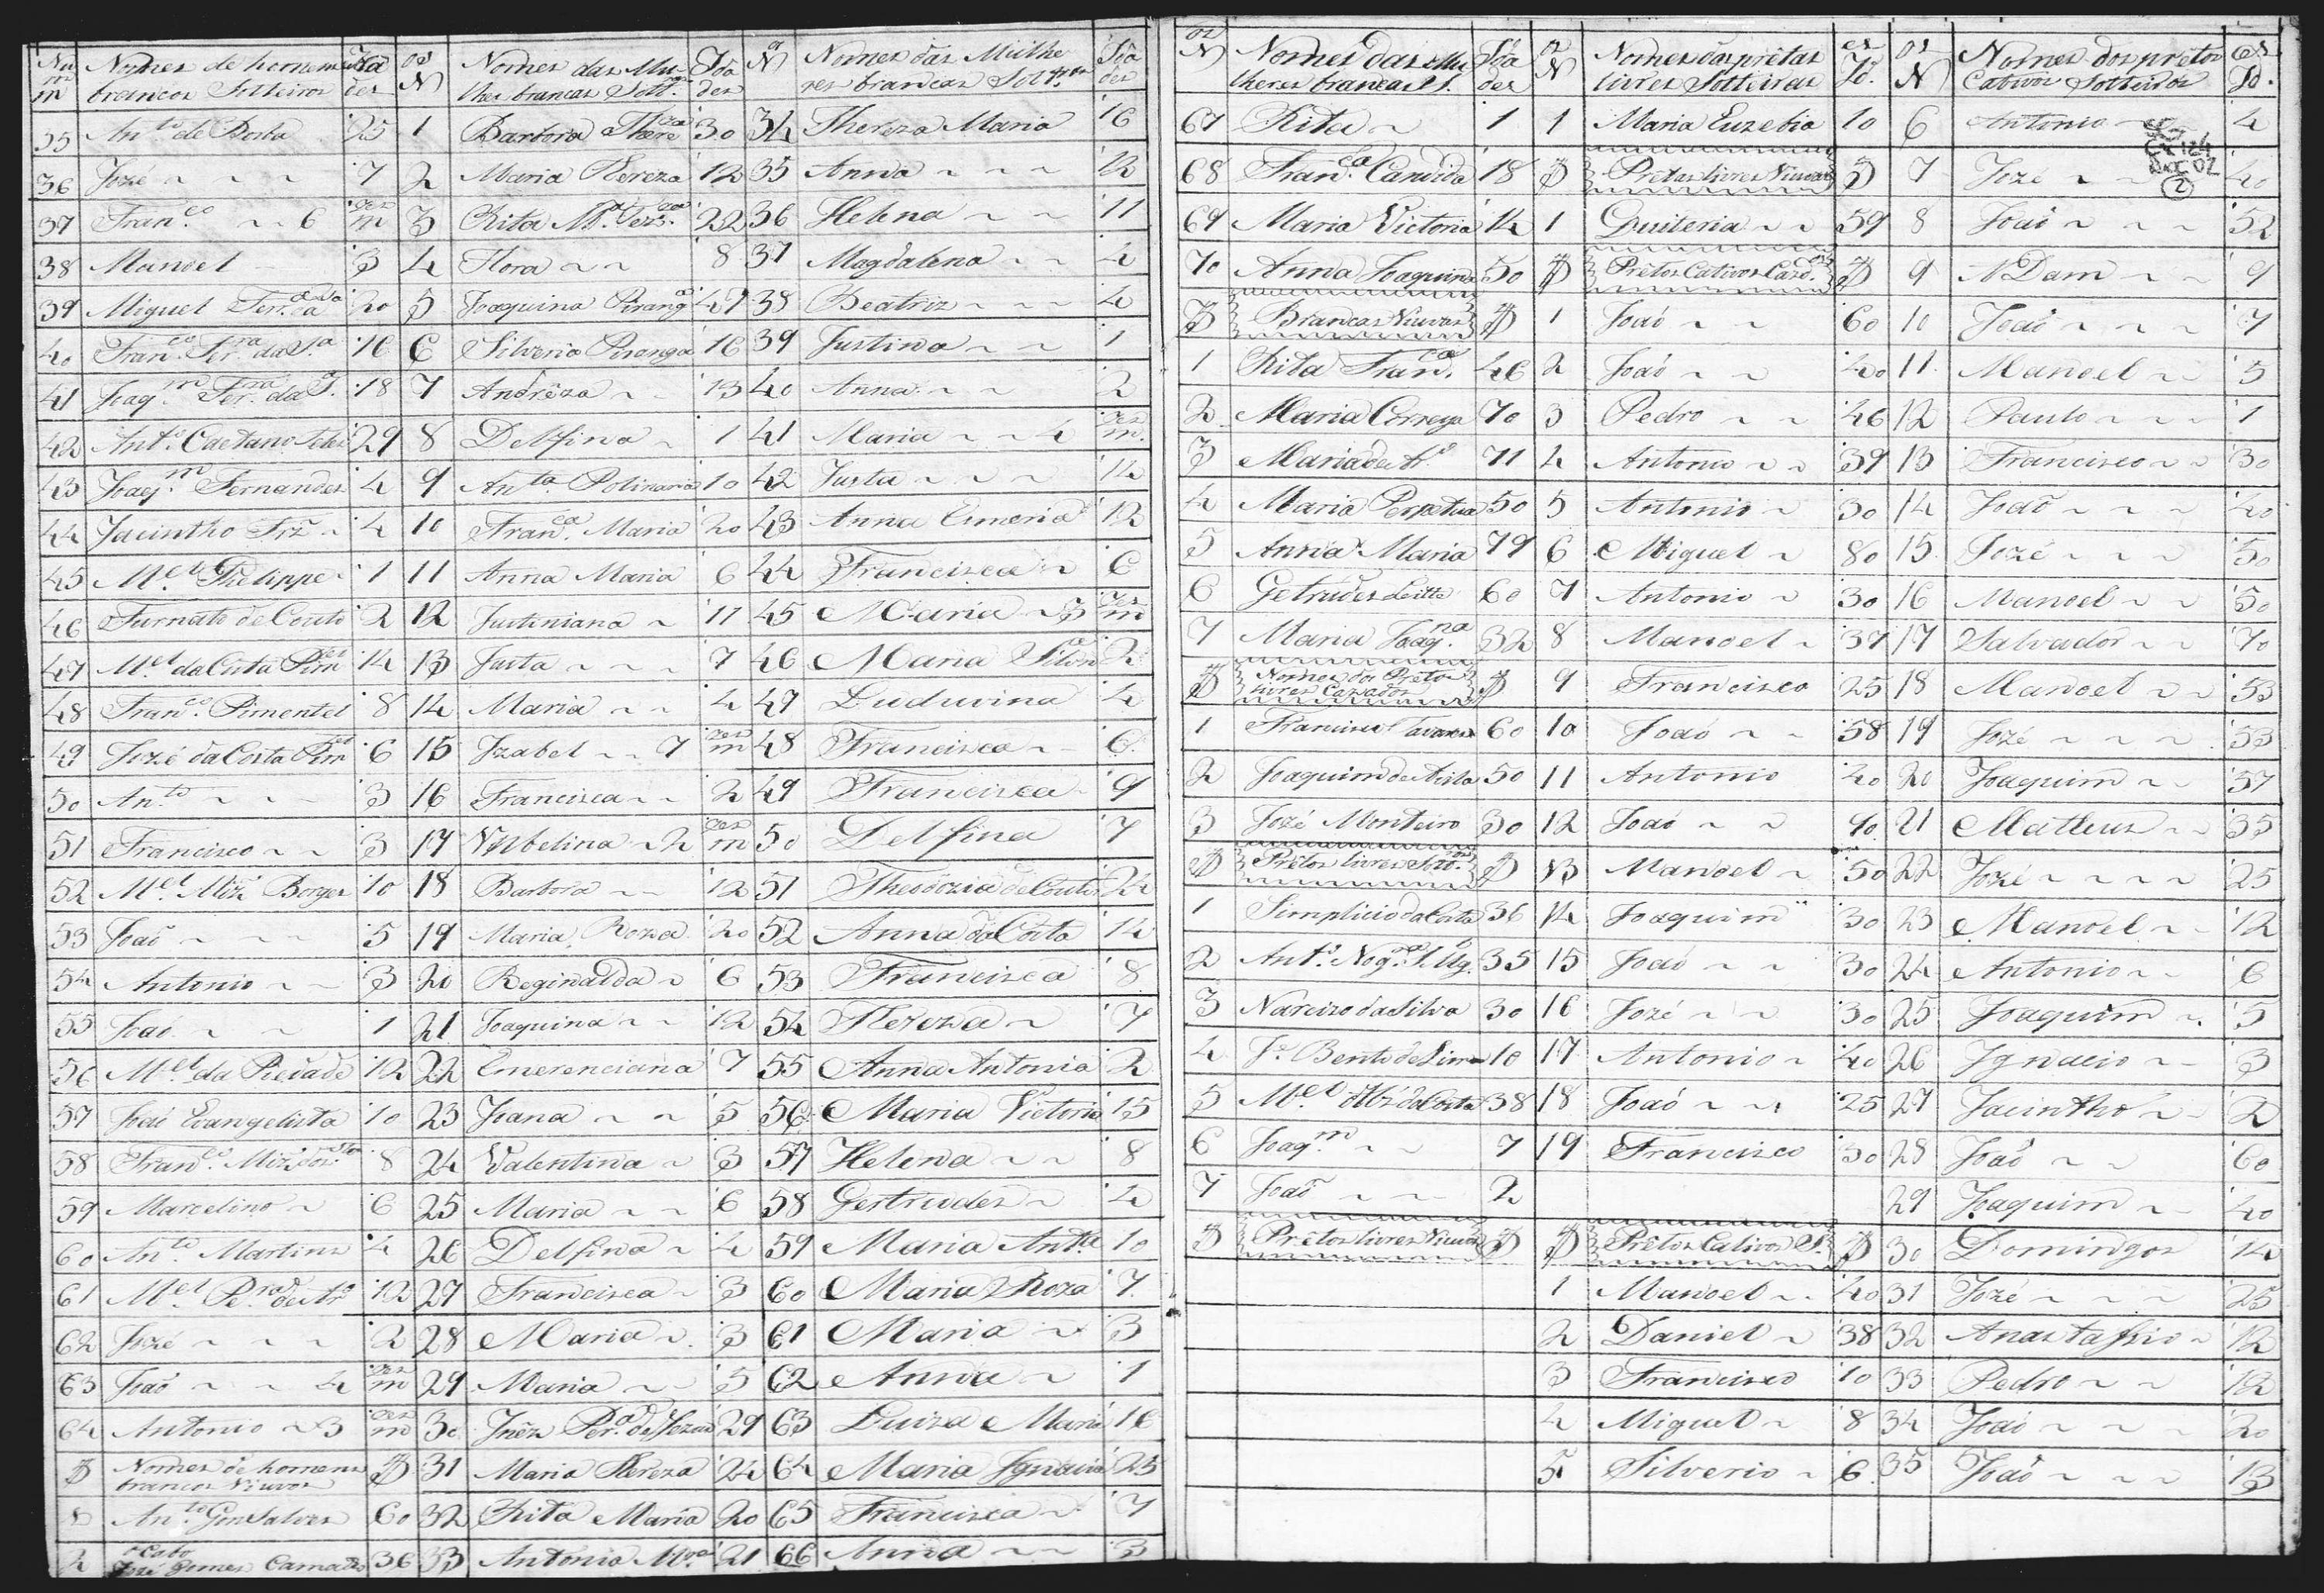 Num Nomes de homens brancos Solteiros Idades
35 Anto de Borba 25
36 Jozé 7
37 Franco 6 mezes
38 Manoel 3
39 Miguel Ferra da Sa 20
40 Franco Ferra da Sa 16
41 Joaqm Ferra da Sa 18
42 Anto Caetano 29
43 Joaqm Fernandes 4
44 Jacintho 4
45 Mel Phelippe 1
46 Furnato do Couto 2
47 Mel da Costa Pimel 14
48 Franco Pimentel 8
49 Jozé da Costa Pimel 6
50 Anto 3
51 Francisco 3
52 Mel Miz Borges 10
53 João 5
54 Antonio 3
55 João 1
56 Mel da Piedade 12
57 João Evangelista 10
58 Franco Miz dos Stos 8
59 Marcelino 6
60 Anto Martins 4
61 Mel Pera de Aro 12
62 Jozé 2
63 João 4 mezes
64 Antonio 3 mezes
Nomes de homens brancos Viuvos
1 Anto Gonsalves 60
2 o Cabo Jozé Gomes 36
Nos Nomes das Mulheres brancas Soltras Idades
1 Barbora Thereza 30
2 Maria Thereza 12
3 Rita Ma 22
4 Flora 8
5 Joaquina Piranga 47
6 Silveria Piranga 16
7 Andreza 13
8 Delfina 1
9 Anta Polinaria 10
10 Franca Maria 20
11 Anna Maria 6
12 Justiniana 11
13 Justa 7
14 Maria 4
15 Izabel 7 mezes
16 Francisca 2
17 Umbelina 2 mezes
18 Barbora 12
19 Maria Roza 20
20 Reginalda 6
21 Joaquina 12
22 Emerenciana 7
23 Joana 5
24 Valentina 3
25 Maria 6
26 Delfina 4
27 Francisca 3
28 Maria 3
29 Maria 5
30 Inêz Pera de Jezus 29
31 Maria Thereza 24
32 Rita Maria 20
33 Antonia Ma 21
Nos Nomes das Mulheres brancas Soltras Idades
34 Thereza Maria 16
35 Anna 12
36 Helena 11
37 Magdalena 4
38 Beatriz 4
39 Justina 1
40 Anna 2
41 Maria 4 mezes
42 Justa 14
43 Anna Emeria 12
44 Francisca 6
45 Maria 3 mezes
46 Maria Silva 2
47 Luduvina 4
48 Francisca 6
49 Francisca 9
50 Delfina 7
51 Theodozia do Couto 24
52 Anna da Costa 14
53 Francisca 8
54 Thereza 7
55 Anna Antonia 2
56 Maria Victoria 15
57 Helena 8
58 Gertrudes 4
59 Maria Anta 10
60 Maria Roza 7
61 Maria 3
62 Anna 1
63 Luiza Maria 16
64 Maria Ignacia 25
65 Francisca 7
66 Anna 3
Nos Nomes das Mulheres brancas S. Idades
67 Rita 1
68 Franca Candida 18
69 Maria Victoria 14
70 Anna Joaquina 50
Brancas Viuvas
1 Rita Franca 46
2 Maria Correya 70
3 Maria de Aro 71
4 Maria Perpetua 50
5 Anna Maria 79
6 Getrudes Leitte 60
7 Maria Joaqna 32
Nomes dos Prêtos livres Cazados
1 Francisco Tavares 60
2 Joaquim da Costa 50
3 Jozé Monteiro 30
Prêtos livres Soltos
1 Simplicio da Costa 36
2 Anto Nogra 35
3 Narcizo da Silva 30
4 Je Bento de Lima 10
5 Mel da Costa 38
6 Joaqm 7
7 João 2
Prêtos livres Viuvos
Nos Nomes das prêtas livres Solteiras Ides
1 Maria Euzebia 10
Prêtas livres Viuvas
1 Quiteria 59
Prêtos Cativos Cazos
1 João 60
2 João 40
3 Pedro 46
4 Antonio 39
5 Antonio 30
6 Miguel 80
7 Antonio 30
8 Manoel 37
9 Francisco 25
10 João 58
11 Antonio 40
12 João 40
13 Manoel 50
14 Joaquim 30
15 João 30
16 Jozé 30
17 Antonio 40
18 João 25
19 Francisco 30
Prêtos Cativos S.
1 Manoel 40
2 Daniel 38
3 Francisco 10
4 Miguel 8
5 Silverio 6
Nos Nomes dos pretos Cativos Solteiros Ides
6 Antonio 4
7 Jozé 40
8 João 52
9 Adam 9
10 João 7
11 Manoel 5
12 Paulo 1
13 Francisco 30
14 João 40
15 Jozé 50
16 Manoel 50
17 Salvador 70
18 Manoel 53
19 Jozé 53
20 Joaquim 57
21 Matteus 35
22 Jozé 25
23 Manoel 12
24 Antonio 6
25 Joaquim 5
26 Ignacio 3
27 Jacintho 2
28 João 60
29 Joaquim 40
30 Domingos 14
31 Jozé 25
32 Anastassio 12
33 Pedro 12
34 João 20
35 João 13
CX 124
DOC 02
2